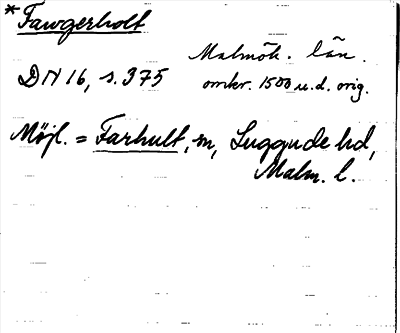 *Fawgerholt
Malmöh. län.
DN 16, s. 375 omkr. 1500 u.d. orig.
Möjl. = Farhult, sn, Luggude hd,
Malm. l.